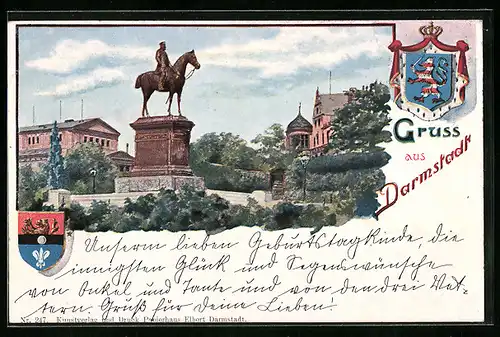 Gruss
aus
Darmstadt
Unserm lieben Geburtstagkinde, die
innigsten Glück und Segenswünsche
von Onkel und Tante und von den drei Vet-
tern. Gruß für Deine Lieben!
Nr. 247. Kunstverlag und Druck Papierhaus Elbert Darmstadt.